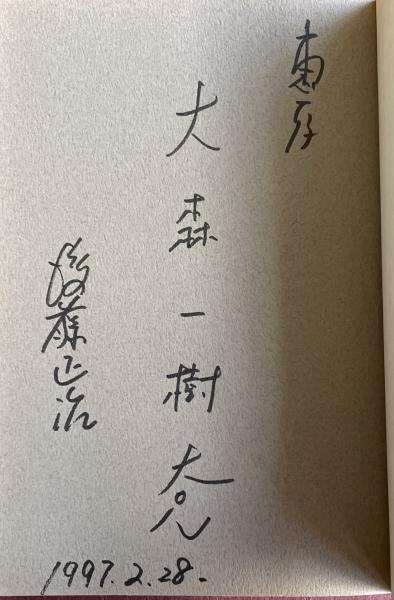 恵存
大森一樹大兄
後藤正治
1997.2.28.